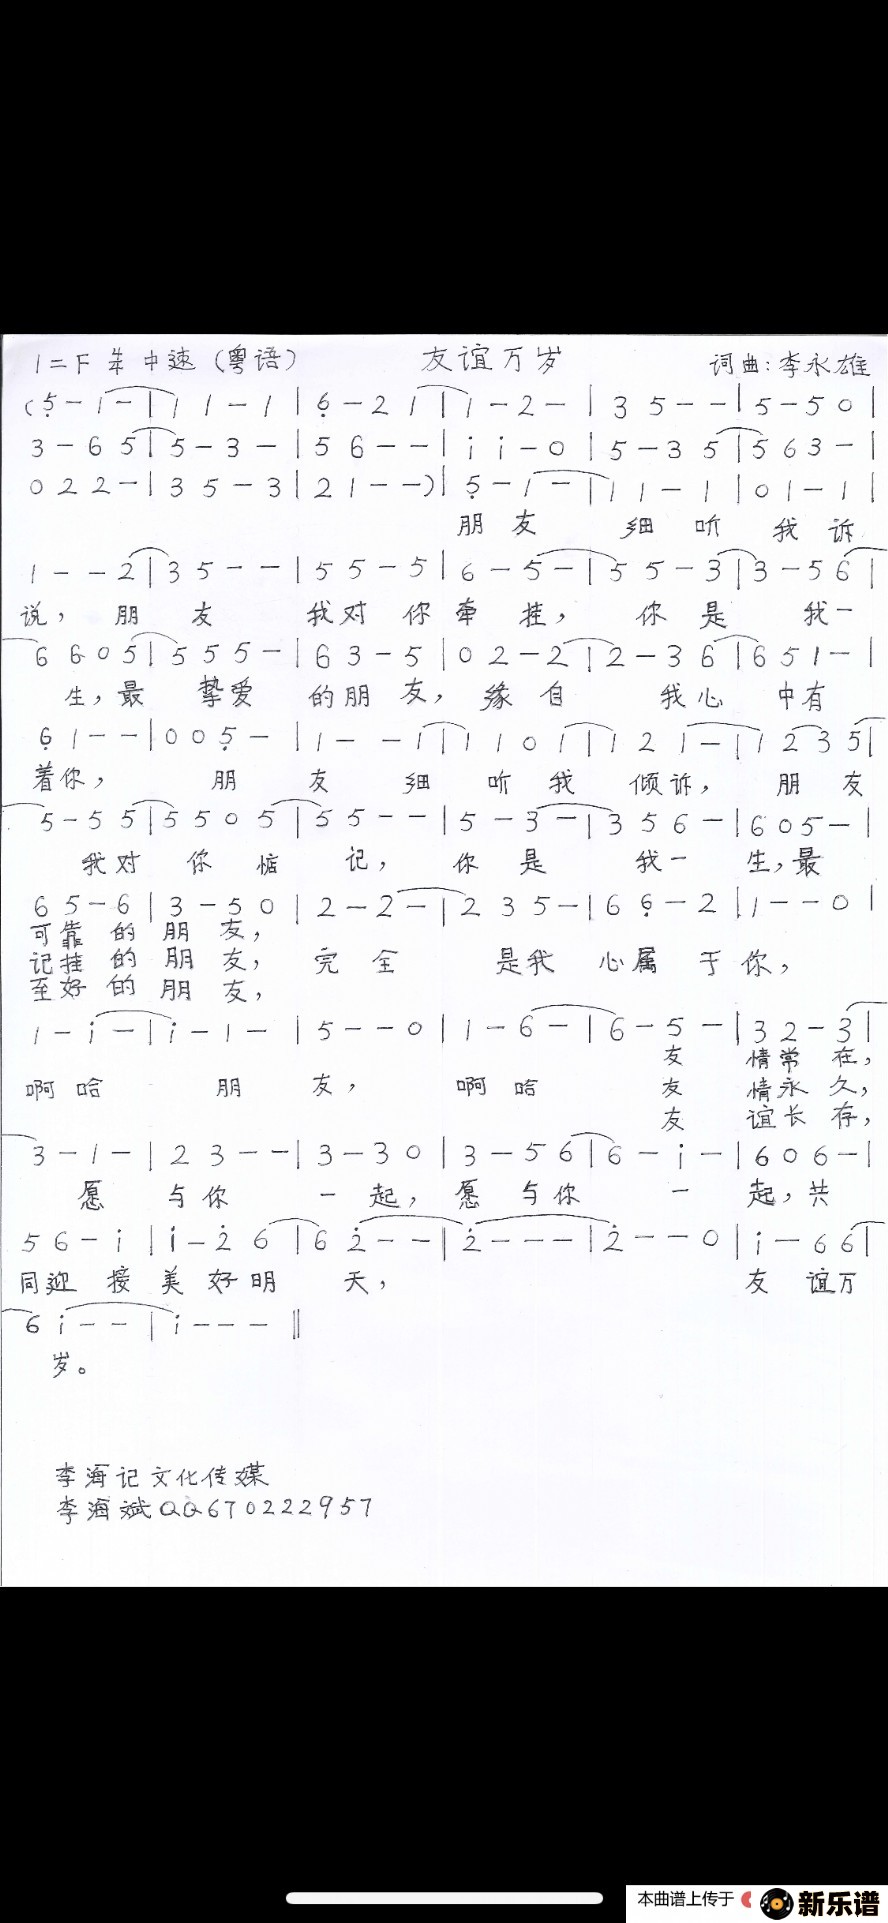 1=F 4/4 中速（粤语） 友谊万岁 词曲：李永雄
(5̣ - 1 - | 1 1 - 1 | 6̣ - 2 1 | 1 - 2 - | 3 5 - - | 5 - 5 0 |
3 - 6 5 | 5 - 3 - | 5 6 - - | i i - 0 | 5 - 3 5 | 5 6 3 - |
0 2 2 - | 3 5 - 3 | 2 1 - -) | 5̣ - 1 - | 1 1 - 1 | 0 1 - 1 |
朋 友 细 听 我 诉
1 - - 2 | 3 5 - - | 5 5 - 5 | 6 - 5 - | 5 5 - 3 | 3 - 5 6 |
说， 朋 友 我对 你 牵 挂， 你 是 我一
6 6 0 5 | 5 5 5 - | 6 3 - 5 | 0 2 - 2 | 2 - 3 6 | 6 5 1 - |
生，最 挚爱 的朋 友， 缘 自 我心 中有
6̣ 1 - - | 0 0 5̣ - | 1 - - 1 | 1 1 0 1 | 1 2 1 - | 1 2 3 5 |
着你， 朋 友 细 听 我 倾诉， 朋 友
5 - 5 5 | 5 5 0 5 | 5 5 - - | 5 - 3 - | 3 5 6 - | 6 0 5 - |
我对 你 惦 记， 你 是 我一 生，最
6 5 - 6 | 3 - 5 0 | 2 - 2 - | 2 3 5 - | 6 6̣ - 2 | 1 - - 0 |
可靠 的 朋 友，
记挂 的 朋 友， 完 全 是我 心属 于 你，
至好 的 朋 友，
1 - i - | i - 1 - | 5 - - 0 | 1 - 6 - | 6 - 5 - | 3 2 - 3 |
友 情常 在，
啊 哈 朋 友， 啊 哈 友 情永 久，
友 谊长 存，
3 - 1 - | 2 3 - - | 3 - 3 0 | 3 - 5 6 | 6 - i - | 6 0 6 - |
愿 与你 一 起， 愿 与你 一 起，共
5 6 - i | i - 2̇ 6 | 6 2̇ - - | 2̇ - - - | 2̇ - - 0 | i - 6 6 |
同迎 接 美 好 明 天， 友 谊万
6 i - - | i - - - ‖
岁。
李海记文化传媒
李海斌QQ670222957
本曲谱上传于 新乐谱